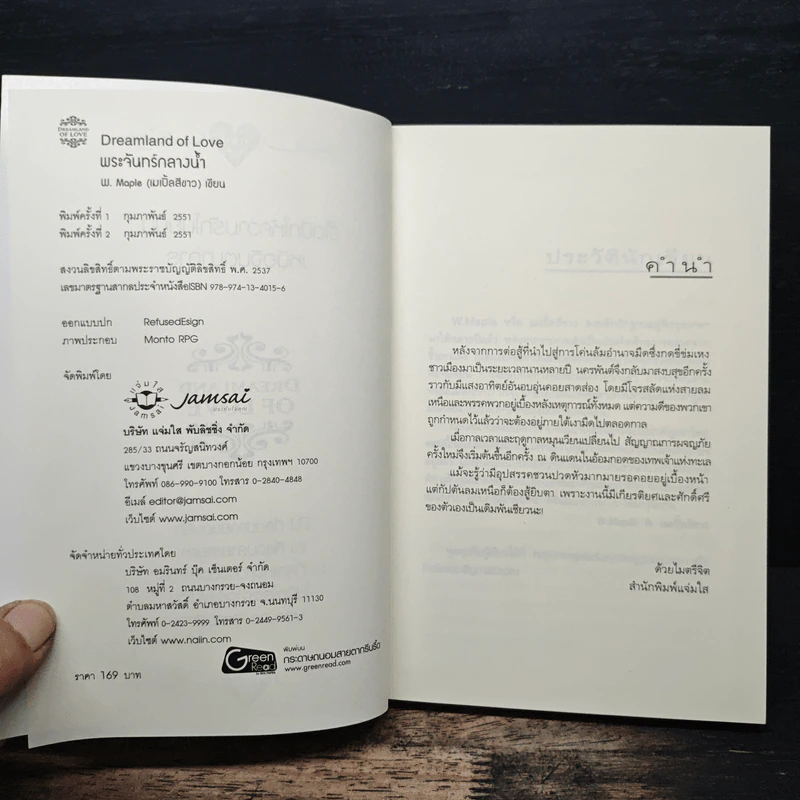 DREAMLAND
OF LOVE
Dreamland of Love
พระจันทร์กลางน้ำ
W. Maple (เมเปิ้ลสีขาว) เขียน
พิมพ์ครั้งที่ 1 กุมภาพันธ์ 2551
พิมพ์ครั้งที่ 2 กุมภาพันธ์ 2551
สงวนลิขสิทธิ์ตามพระราชบัญญัติลิขสิทธิ์ พ.ศ. 2537
เลขมาตรฐานสากลประจำหนังสือISBN 978-974-13-4015-6
ออกแบบปก RefusedEsign
ภาพประกอบ Monto RPG
จัดพิมพ์โดย
แจ่มใส
Jamsai
Jamsai
บริษัท แจ่มใส พับลิชชิ่ง จำกัด
285/33 ถนนจรัญสนิทวงศ์
แขวงบางขุนศรี เขตบางกอกน้อย กรุงเทพฯ 10700
โทรศัพท์ 086-990-9100 โทรสาร 0-2840-4848
อีเมล์ editor@jamsai.com
เว็บไซต์ www.jamsai.com
จัดจำหน่ายทั่วประเทศโดย
บริษัท อมรินทร์ บุ๊ค เซ็นเตอร์ จำกัด
108 หมู่ที่ 2 ถนนบางกรวย-จงถนอม
ตำบลมหาสวัสดิ์ อำเภอบางกรวย จ.นนทบุรี 11130
โทรศัพท์ 0-2423-9999 โทรสาร 0-2449-9561-3
เว็บไซต์ www.naiin.com
Green
Read
พิมพ์บน
กระดาษถนอมสายตากรีนรี้ด
www.greenread.com
ราคา 169 บาท
คำนำ
หลังจากการต่อสู้ที่นำไปสู่การโค่นล้มอำนาจมืดซึ่งกดขี่ข่มเหง
ชาวเมืองมาเป็นระยะเวลานานหลายปี นครพันต์จึงกลับมาสงบสุขอีกครั้ง
ราวกับมีแสงอาทิตย์อันอบอุ่นคอยสาดส่อง โดยมีโจรสลัดแห่งสายลม
เหนือและพรรคพวกอยู่เบื้องหลังเหตุการณ์ทั้งหมด แต่ความดีของพวกเขา
ถูกกำหนดไว้แล้วว่าจะต้องอยู่ภายใต้เงามืดไปตลอดกาล
เมื่อกาลเวลาและฤดูกาลหมุนเวียนเปลี่ยนไป สัญญาณการผจญภัย
ครั้งใหม่จึงเริ่มต้นขึ้นอีกครั้ง ณ ดินแดนในอ้อมกอดของเทพเจ้าแห่งทะเล
แม้จะรู้ว่ามีอุปสรรคชวนปวดหัวมากมายรอคอยอยู่เบื้องหน้า
แต่กัปตันลมเหนือก็ต้องสู้ยิบตา เพราะงานนี้มีเกียรติยศและศักดิ์ศรี
ของตัวเองเป็นเดิมพันเชียวนะ!
ด้วยไมตรีจิต
สำนักพิมพ์แจ่มใส